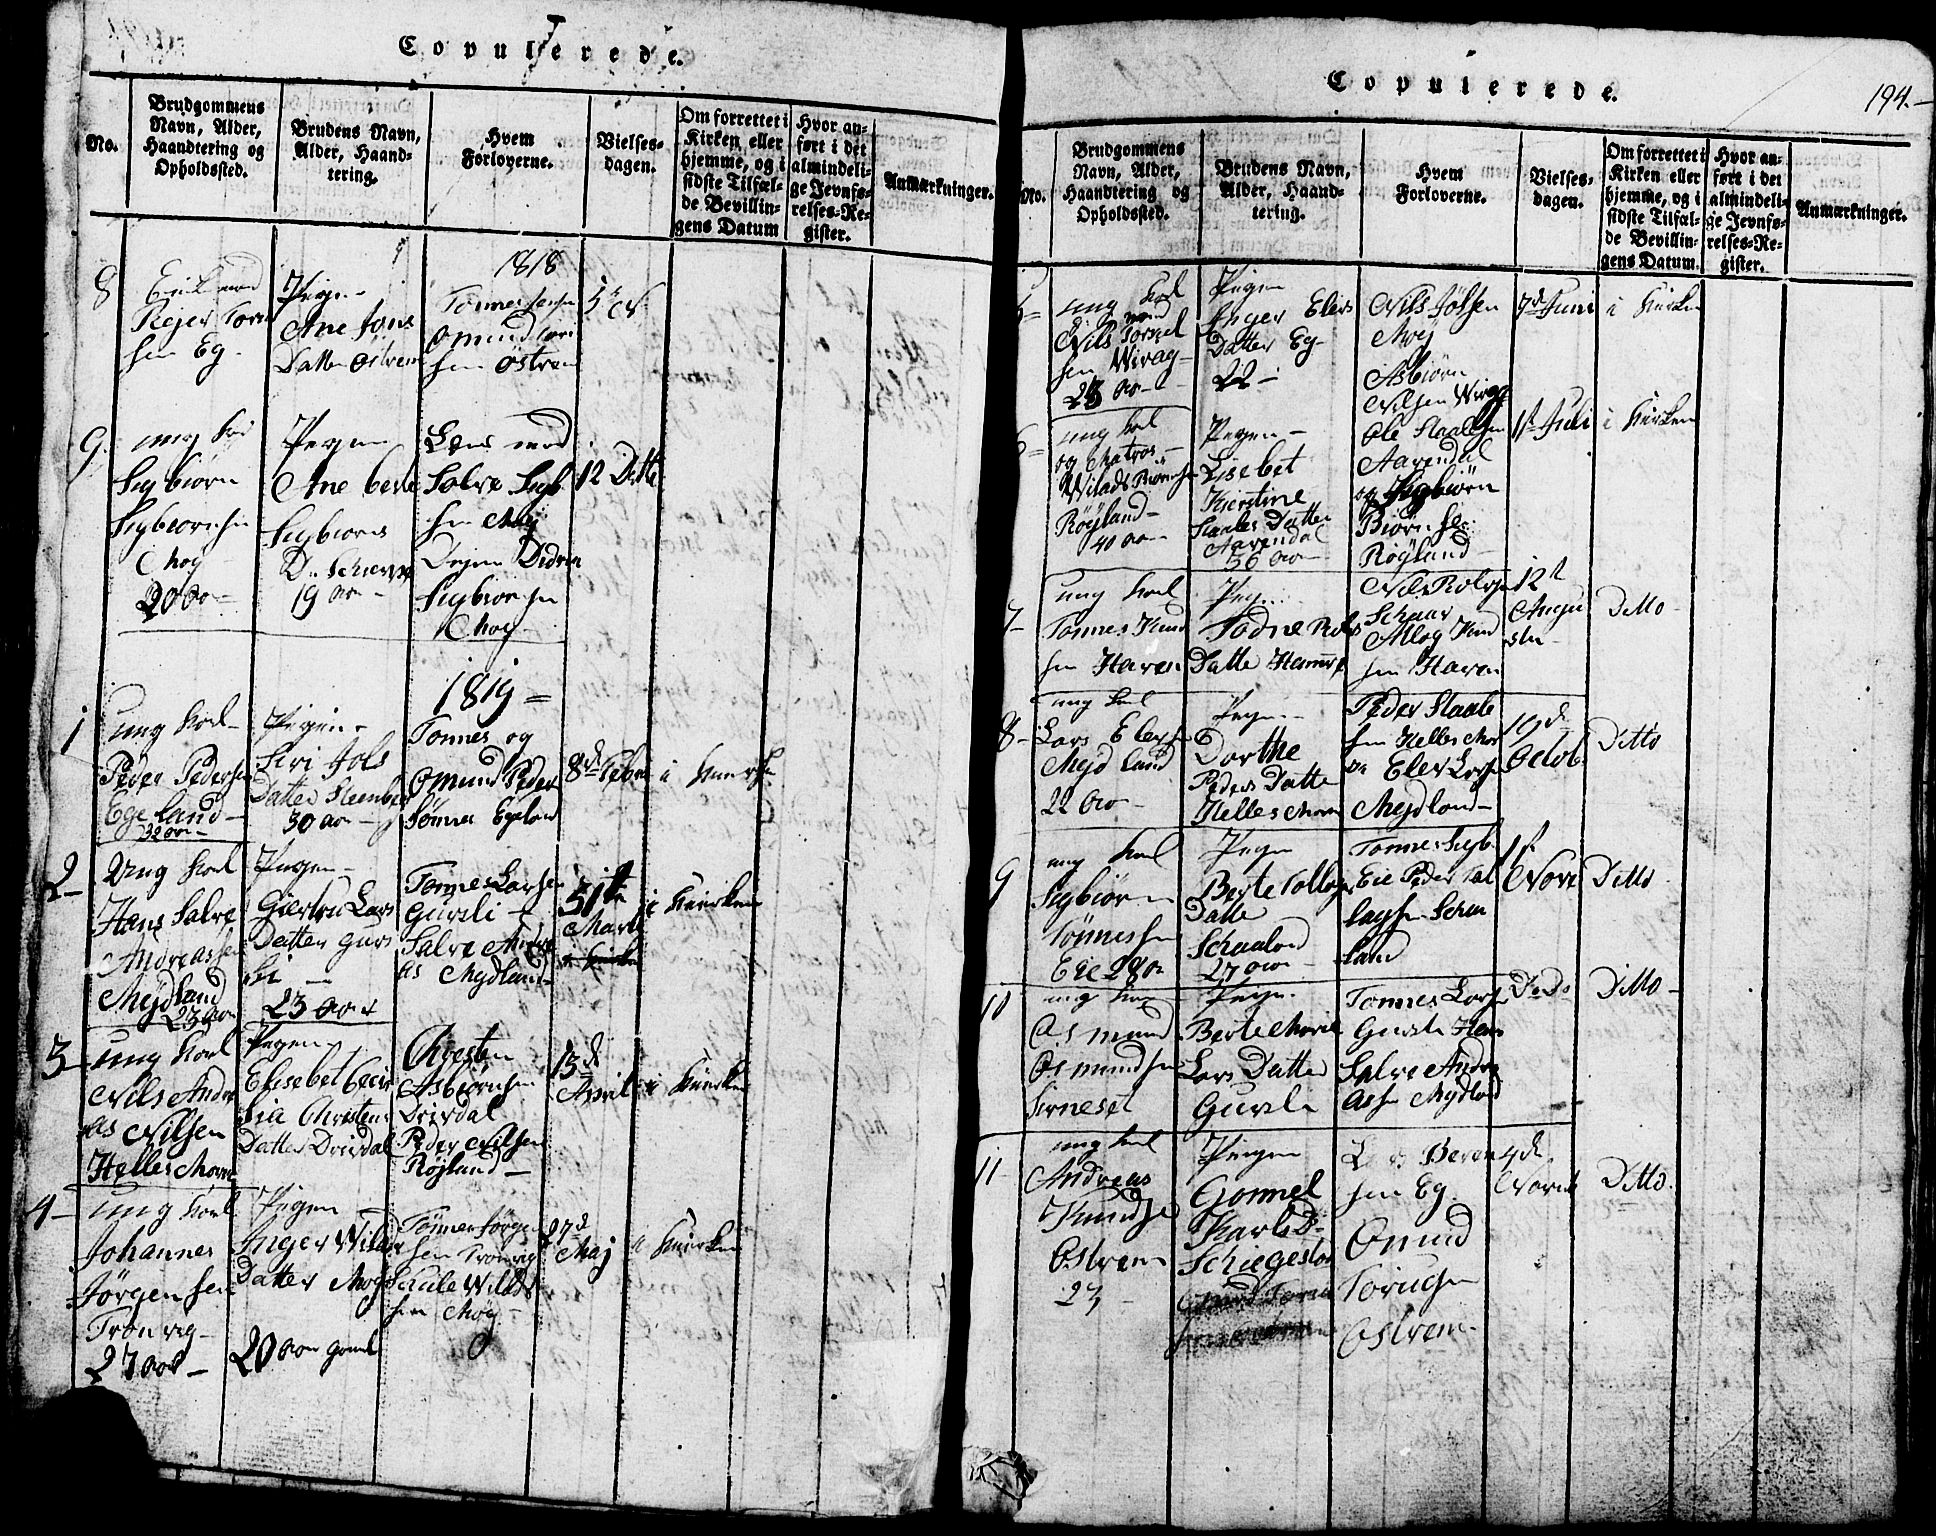 Copulerede.
No.
Brudgommens
Navn, Alder,
Haandtering og
Opholdssted.
Brudens Navn,
Alder, Haand-
tering.
Hvem
Forloverne.
Vielses-
dagen.
Om forrettet i
Kirken eller
hjemme, og i
sidste Tilfæl-
de Bevillin-
gens Datum
Hvor an-
ført i det
almindeli-
ge Jevnfø-
relses-Re-
gister.
Anmærkninger.
1818
8
Enkemand
Rejer Torn
sen Eg
Pigen
Ane Jons
Datter Østrem
Tonnes
Omund
sen Østrem
9
ung karl
Sigbiorn
Sigbiornsen
Moy
20 Aar
Pigen
Ane
Sigbiorns
D.
19 Aar
Salve Sigb.
sen Moy
Didrik
Sigbiornsen
Moy
12 Ditto
1819
1
ung Karl
Peder Pedersen
Egeland
32 aar
Pigen
Siri Jols
Datter Steenber
30 aar
Tonnes og
Omund Peder
Sønner Egeland
8de Febru
i Kirken
2
Ung Karl
Hans Salve
Andreassen
Mydland
23 Aar
Pigen
Giertru Lars
Datter Gurs
li
23 Aar
Tonnes Larsen
Gursli
Salve Andre
as Mydland
31te
Marti
i Kirken
3
ung Karl
Nils Andre
as Nilsen
Helles Moen
Pigen
Elisebet Ceci
lia Christens
Datter Drivdal
Chresten
Asbiørnsen
Drivdal
Peder Nilsen
Røjland
13de
April
i Kirken
4
ung Karl
Johannes
Jørgensen
Tronvig
27 Aar
Pigen
Inger Wilas
Datter Moy
20 Aar gaml
Tønnes Jørgen
sen Tronvig
Wilds
sen Moy
27de
Maj
i Kirken
Copulerede.
194.
No.
Brudgommens
Navn, Alder,
Haandtering og
Opholdsted.
Brudens Navn,
Alder, Haand-
tering.
Hvem
Forloverne.
Vielses-
dagen.
Om forrettet i
Kirken eller
hjemme, og i
sidste Tilfæl-
de Bevillin-
gens Datum.
Hvor an-
ført i det
almindeli-
ge Jevnfø-
relses-Re-
gister.
Anmærkninger.
ung Karl
Nils Torkel
sen Wirag
23 Aar
Pigen
Inger Elers
Datter Eg
22
Nils Jølsen
Moj
Asbiørn
Nilsen Wirag
7de Juni
i Kirken
6
ung Karl
og Matros
Wilads Biørnsen
Røyland
40 aar
Pigen
Lisebet
Kierstine
Staales Datter
Aarendal
36 Aar
Ole Staalesen
Aarendal
og Sigbiørn
Biørnsen
Røyland
1st Juli
i Kirken
7
ung Karl
Tonnes Knud
sen Haven
Pigen
Todne
Datte
Nils Rolvsen
Schaar
Knud
sen Haven
12t
Augu
sti
Ditto
8
ung Karl
Lars Elersen
Mydland
22 Aar
Pigen
Dorthe
Peders Datte
Helles Moen
Peder Staale
sen Helles Moe
Eler Larsen
Mydland
19de
Octob.
Ditto
9
ung Karl
Sigbiørn
Tønnessen
Eie 28 Aar
Pigen
Berte Tolleg
Datte
Schaaland
27 Aar
Tonnes Sigb.
Eie Peder Tol
lagsen
land
1st
Nove
Ditto
10
ung Karl
Osmund
Osmundsen
Sirneset
Pigen
Berte Marie
Lars Datter
Gursli
Tonnes Larsen
Gursli Hans
Salve Andre
assen Mydland
Do Do
Ditto
11
ung Karl
Andreas
Knudsen
Ostrem
23
Pigen
Gonnel
Karls D:
Lars Beren
sen Eg
Omund
Ostrem
Novem
Ditto.